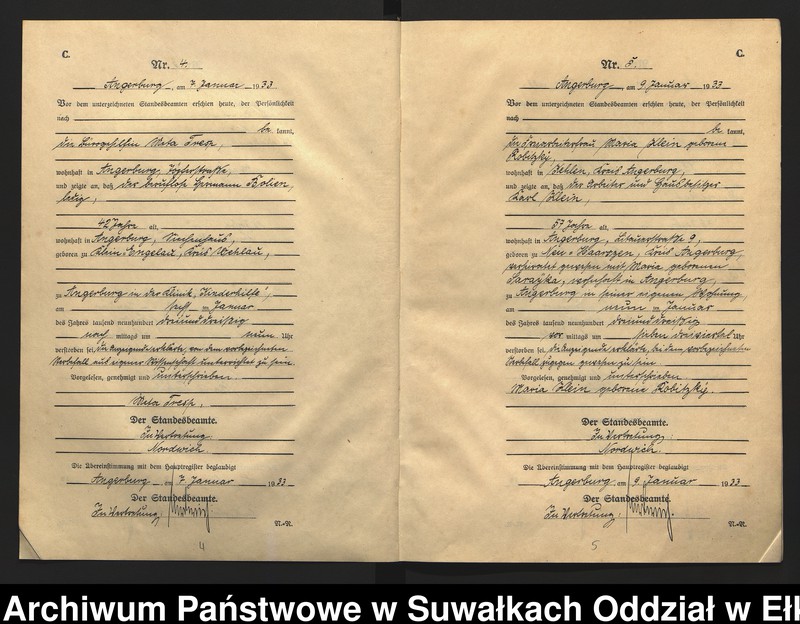 C.
Nr. 4.
Angerburg, am 7. Januar 1933
Vor dem unterzeichneten Standesbeamten erschien heute, der Persönlichkeit
nach
be kannt,
die Bürogehilfin Meta Tresp,
wohnhaft in Angerburg, Töpferstraße,
und zeigte an, daß der berufslose Hermann Bolien,
ledig,
42 Jahre alt,
wohnhaft in Angerburg, Siechenhaus,
geboren zu Klein-Engelau, Kreis Wehlau,
zu Angerburg in der Klinik "Kinderhilfe",
am Januar
des Jahres tausend neunhundert dreiunddreißig
nach mittags um neun Uhr
verstorben sei, die Anzeigende erklärte, von dem vorbezeichneten
Sterbefall aus eigener Wissenschaft unterrichtet zu sein.
Vorgelesen, genehmigt und unterschrieben.
Meta Tresp.
Der Standesbeamte.
In Vertretung
Nordwich
Die Übereinstimmung mit dem Hauptregister beglaubigt
Angerburg am 7. Januar 1933
Der Standesbeamte.
In Vertretung:
N.-R.
4
C.
Nr. 5.
Angerburg am 9. Januar 1933
Vor dem unterzeichneten Standesbeamten erschien heute, der Persönlichkeit
nach
be kannt,
Maria Klein geborene
Kobitzky,
wohnhaft in Kehlen, Kreis Angerburg,
und zeigte an, daß der Arbeiter und Hausbesitzer
Karl Klein,
57 Jahre alt,
wohnhaft in Angerburg, 9,
geboren zu Neu-Haarszen, Kreis Angerburg,
verheiratet gewesen mit Maria geborenen
wohnhaft in Angerburg,
zu Angerburg in seiner eigenen Wohnung
am neun Januar
des Jahres tausend neunhundert dreiunddreißig
vor mittags um sieben dreiviertel Uhr
verstorben sei, die Anzeigende erklärte, bei dem vorbezeichneten
Sterbefall zugegen gewesen zu sein
Vorgelesen, genehmigt und unterschrieben
Maria Klein geborene Kobitzky.
Der Standesbeamte.
In Vertretung:
Nordwich.
Die Übereinstimmung mit dem Hauptregister beglaubigt
Angerburg am 9. Januar 1933
Der Standesbeamte.
In Vertretung:
N.-R.
5
Archiwum Państwowe w Suwałkach Oddział w Ełk